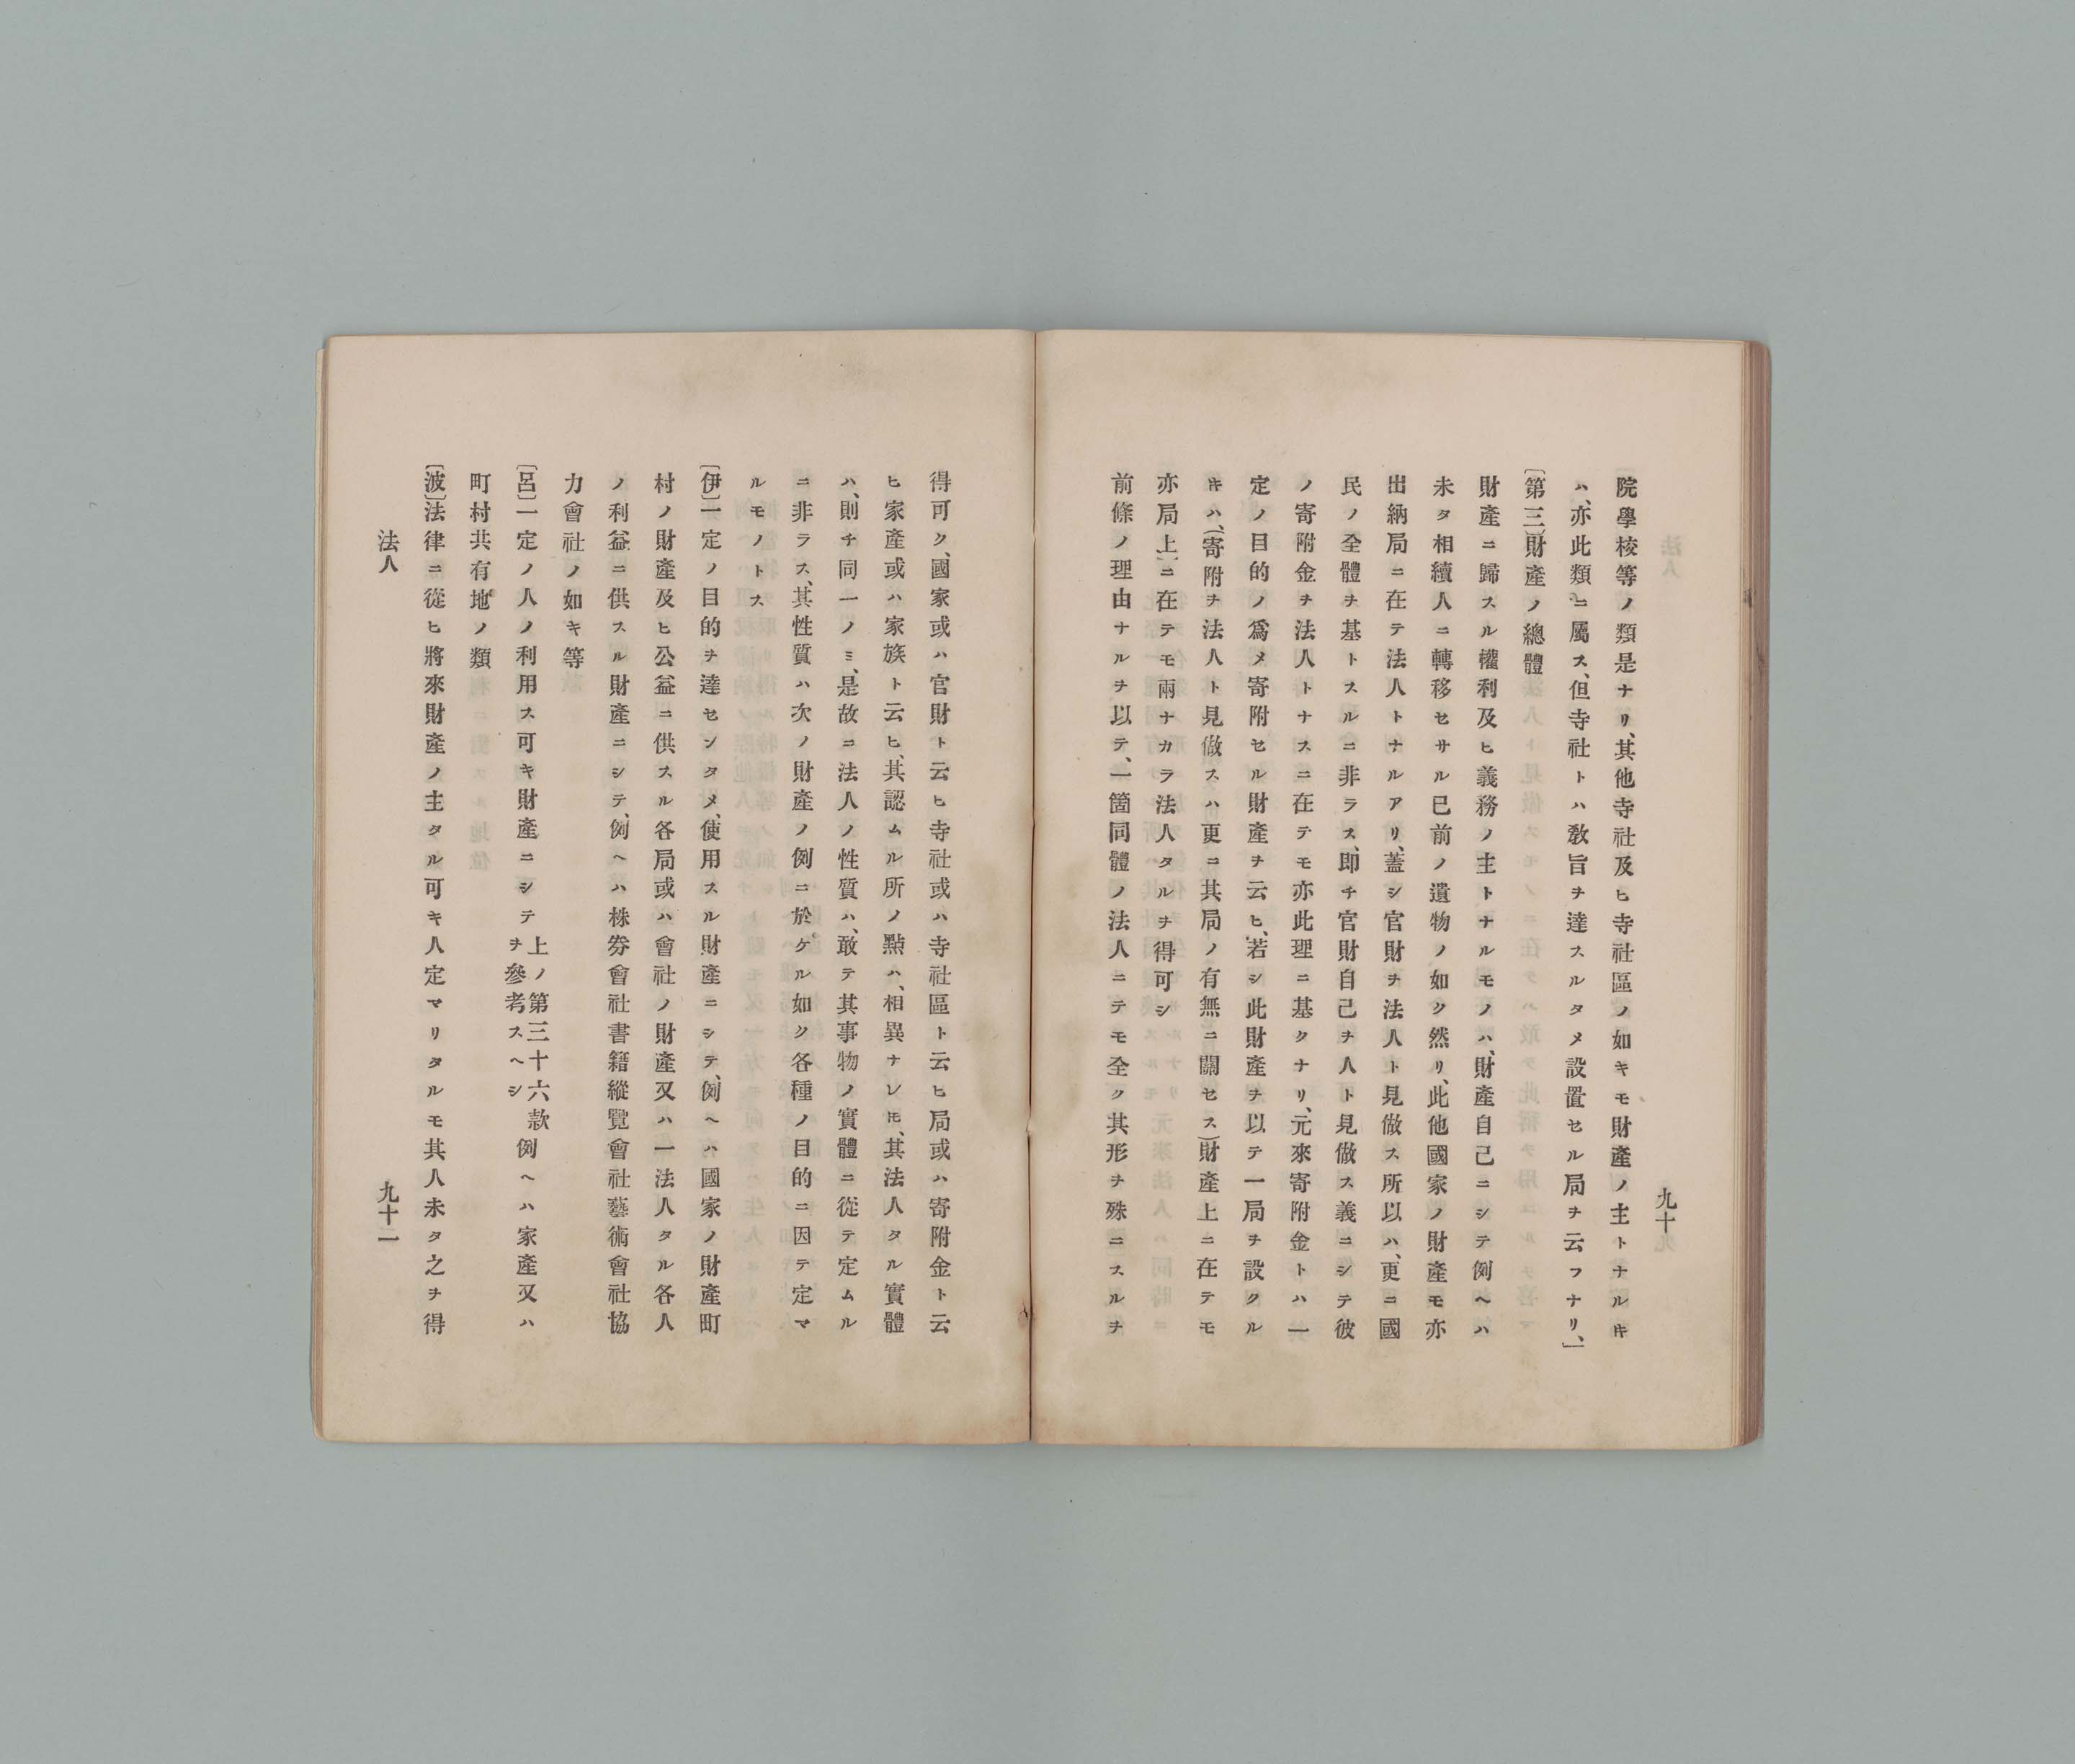 九十
院學校等ノ類是ナリ、其他寺社及ヒ寺社區ノ如キモ財產ノ主トナルキ
ハ、亦此類ニ屬ス、但寺社トハ敎旨ヲ達スルタメ設置セル局ヲ云フナリ、」
〔第三〕財產ノ總體
財產ニ歸スル權利及ヒ義務ノ主トナルモノハ、財產自己ニシテ例ヘハ
未タ相續人ニ轉移セサル已前ノ遺物ノ如ク然リ、此他國家ノ財產モ亦
出納局ニ在テ法人トナルアリ、蓋シ官財ヲ法人ト見做ス所以ハ、更ニ國
民ノ全體ヲ基トスルニ非ラス、即チ官財自己ヲ人ト見做ス義ニシテ彼
ノ寄附金ヲ法人トナスニ在テモ亦此理ニ基クナリ、元來寄附金トハ一
定ノ目的ノ爲メ寄附セル財產ヲ云ヒ、若シ此財產ヲ以テ一局ヲ設クル
キハ、(寄附ヲ法人ト見做スハ更ニ其局ノ有無ニ關セス)財產上ニ在テモ
亦局上ニ在テモ兩ナカラ法人タルヲ得可シ
前條ノ理由ナルヲ以テ、一箇同體ノ法人ニテモ全ク其形ヲ殊ニスルヲ
得可ク、國家或ハ官財ト云ヒ寺社或ハ寺社區ト云ヒ局或ハ寄附金ト云
ヒ家產或ハ家族ト云ヒ、其認ムル所ノ點ハ、相異ナレ𪜈、其法人タル實體
ハ、則チ同一ノミ、是故ニ法人ノ性質ハ、敢テ其事物ノ實體ニ從テ定ムル
ニ非ラス、其性質ハ次ノ財產ノ例ニ於ケル如ク各種ノ目的ニ因テ定マ
ルモノトス
〔伊〕一定ノ目的ヲ達センタメ、使用スル財產ニシテ、例ヘハ國家ノ財產町
村ノ財產及ヒ公益ニ供スル各局或ハ會社ノ財產又ハ一法人タル各人
ノ利益ニ供スル財產ニシテ、例ヘハ株券會社書籍縱覽會社藝術會社協
力會社ノ如キ等
〔呂〕一定ノ人ノ利用ス可キ財產ニシテ 上ノ第三十六款ヲ參考スヘシ 例ヘハ家產又ハ
町村共有地ノ類
〔波〕法律ニ從ヒ將來財產ノ主タル可キ人定マリタルモ其人未タ之ヲ得
法人
九十一